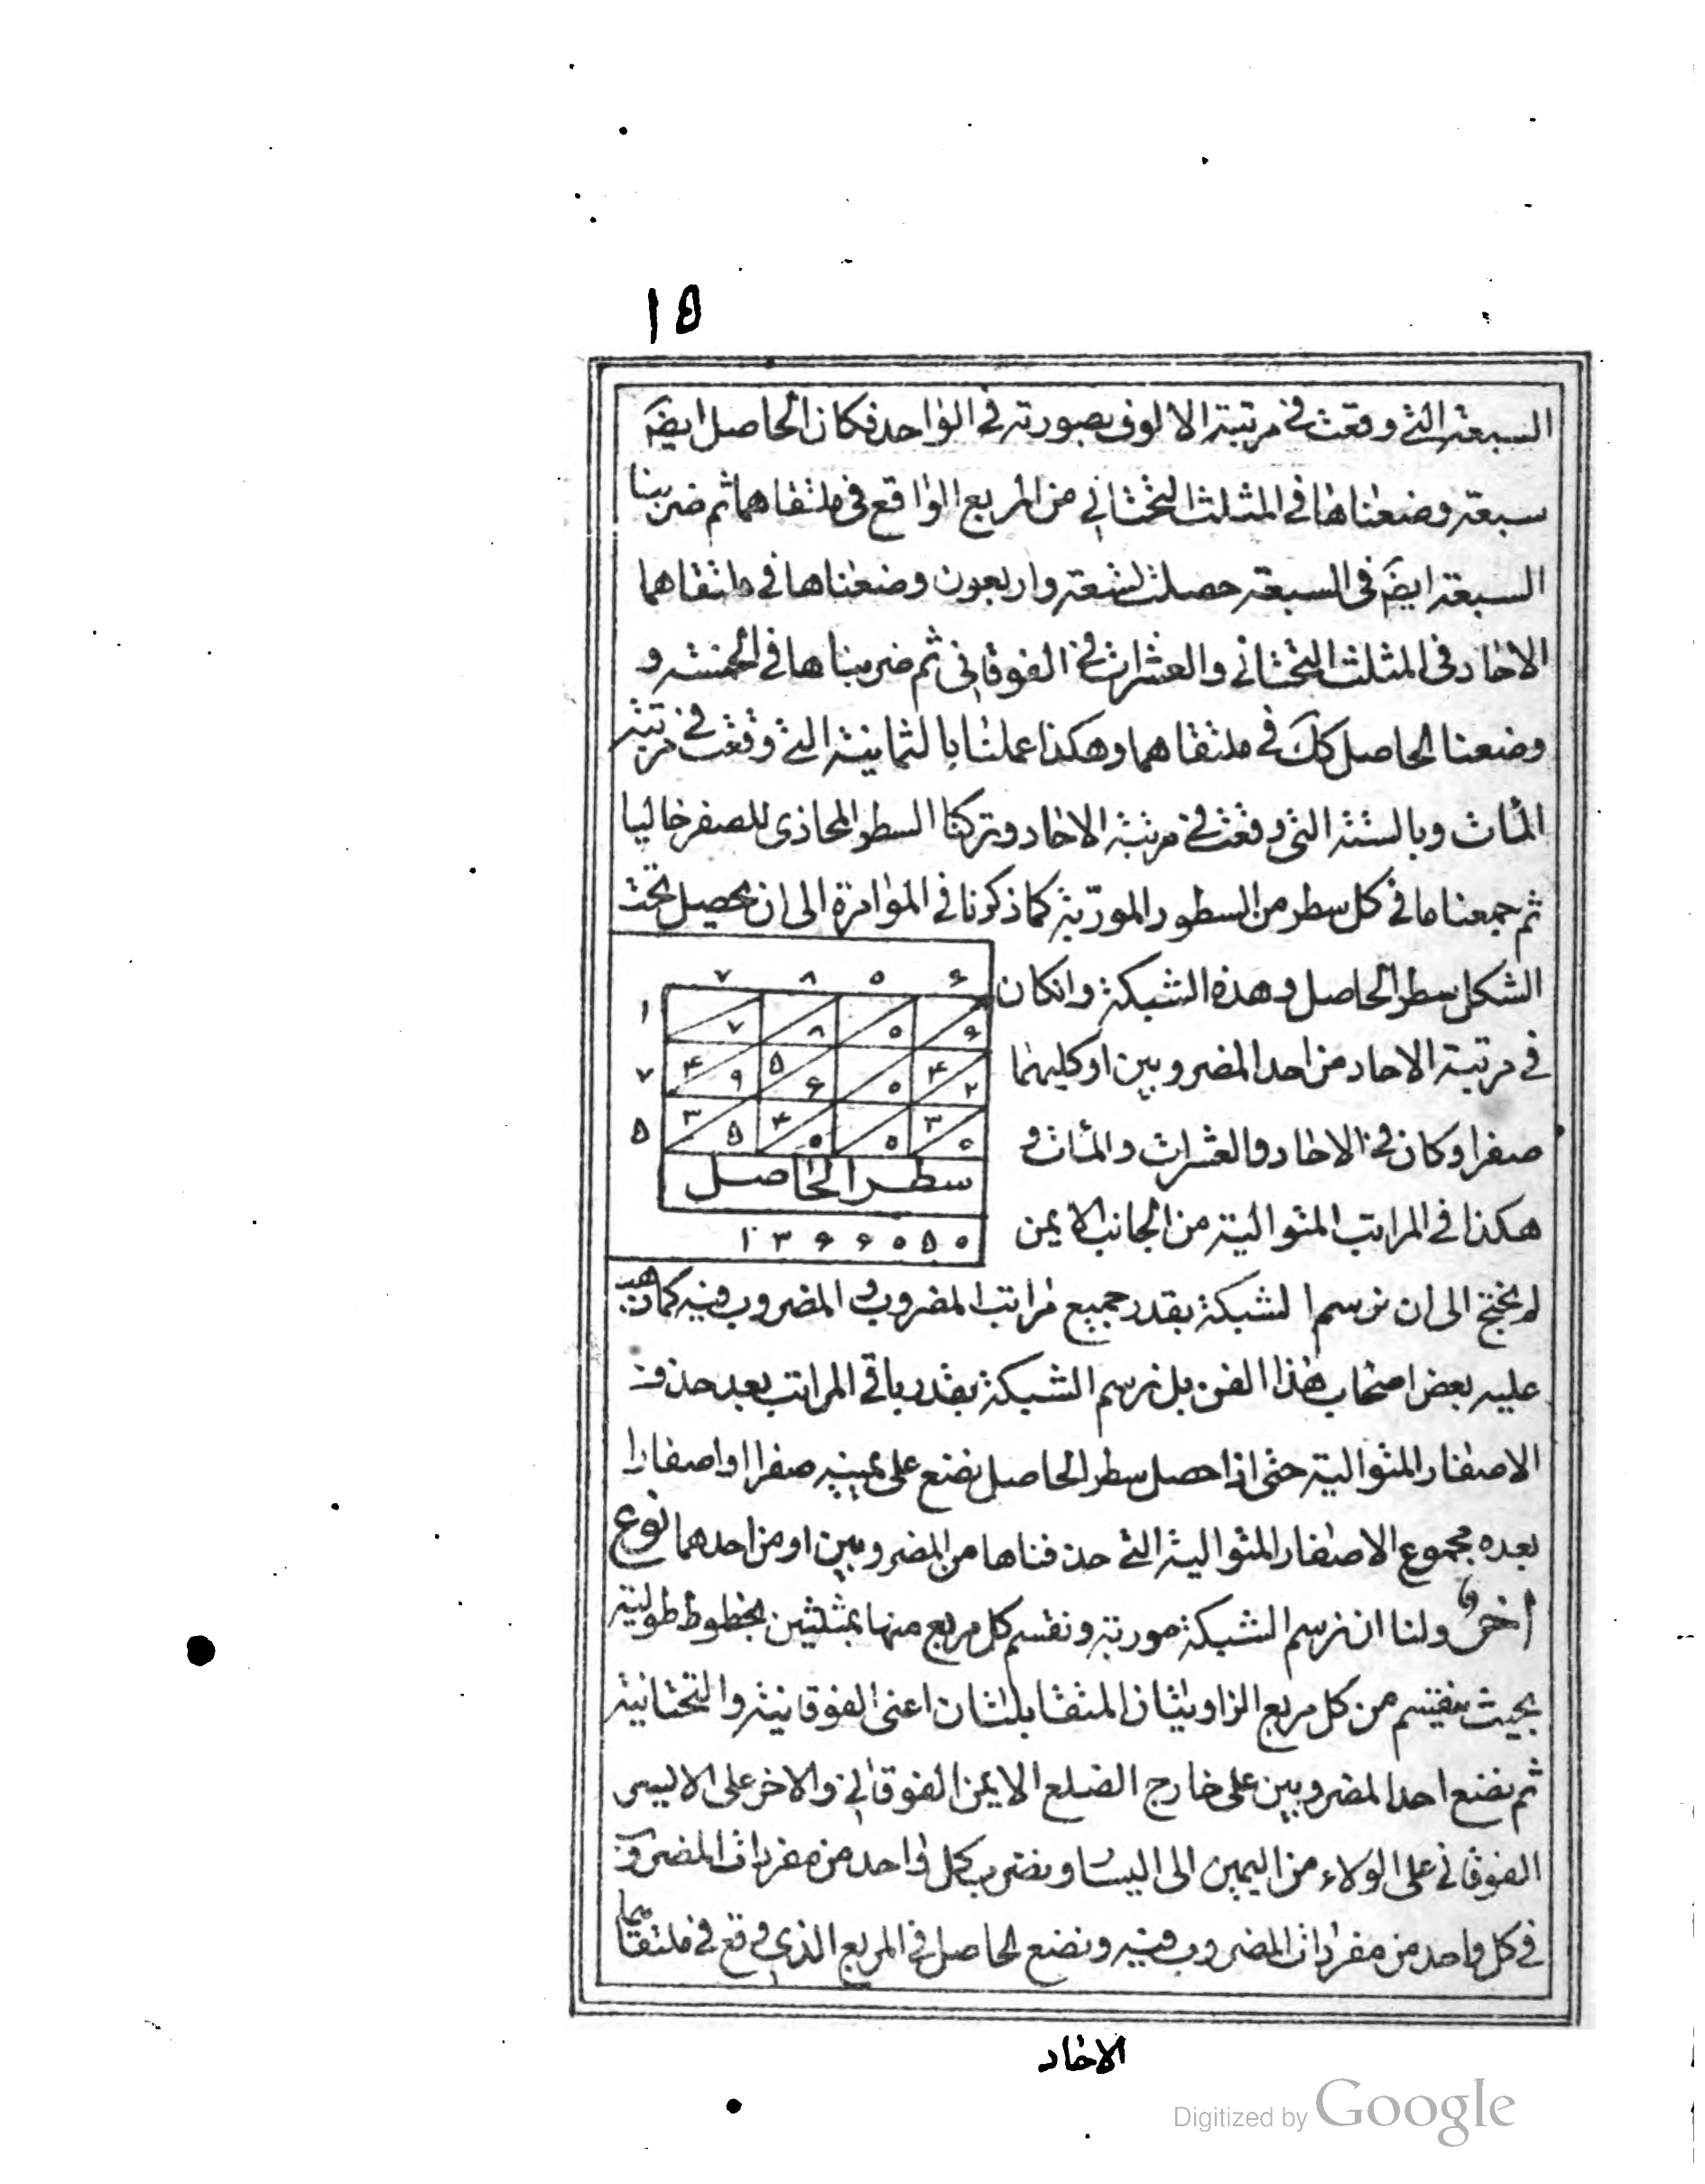 ١٥
السبعة التى وقعت فى مرتبة الالوف بصورته فى الواحد فكان الحاصل ايضَ
سبعة وضعناها فى المثلث التحتانى من المربع الواقع فى ملتقاهما ثم ضربنا
السبعة ايضَ فى السبعة حصلت تسعة واربعون وضعناها فى ملتقاهما
الاحاد فى المثلث التحتانى والعشرات فى الفوقانى ثم ضربناها فى الخمسة و
وضعنا الحاصل كك فى ملتقاهما وهكذا عملنا بالثمانية التى وقعت فى مرتبة
المأت وبالستة التى وقعت فى مرتبة الاحاد وتركنا السطر المحاذى للصفر خاليا
ثم جمعنا ما فى كل سطر من السطور المورّبة كما ذكرنا فى المؤامرة الى ان يحصل تحت
الشكل سطر الحاصل وهذه الشبكة وانكان
فى مرتبة الاحاد من احد المضروبين او كليهما
صفرا وكان فى الاحاد والعشرات والمأت و
هكذا فى المراتب المتوالية من الجانب الايمن
٧ ٨ ٥ ۶
١ ٧ ٨ ٥ ۶
٧ ۴ ٩ ۵ ۶ ٥ ۴ ٢
۵ ٣ ۵ ۴ ٥ ٥ ٣ ٥
سطر الحاصل
١ ٣ ۶ ۶ ٥ ۵ ٥
لم يحتج الى ان نرسم الشبكة بقدر جميع مراتب المضروب و المضروب فيه كما ذهب
عليه بعض اصحاب هذا الفن بل نرسم الشبكة بقدر باقى المراتب بعد حذف
الاصفار المتوالية حتى اذا حصل سطر الحاصل نضع على يمينه صفرا او اصفارا
بعده مجموع الاصفار المتوالية التى حذفناها من المضروبين او من احدهما نوع
اخر ولنا ان نرسم الشبكة مورّبة ونقسم كل مربع منها بمثلثين بخطوط طولية
بحيث ينقسم من كل مربع الزاويتان المتقابلتان اعنى الفوقانية والتحتانية
ثم نضع احد المضروبين على خارج الضلع الايمن الفوقانى والاخر على الايسر
الفوقانى على الولاء من اليمين الى اليسا ونضرب كل واحد من مفردات المضروب
فى كل واحد من مفردات المضروب فيه ونضع الحاصل فى المربع الذى وقع فى ملتقاهما
الاحاد
Digitized by Google